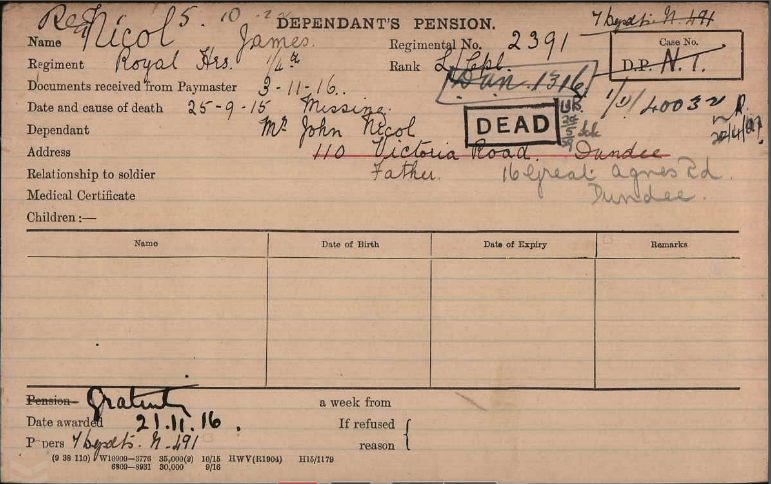 DEPENDANT'S PENSION.
Name Nicol James. Regimental No. 2391
Case No.
Regiment Royal Hrs. 1/4th Rank L/Cpl. D.P. N. 1.
Documents received from Paymaster 3-11-16.. Dun. 1316
Date and cause of death 25-9-15 Missing.
DEAD
Dependant Mr John Nicol
Address 110 Victoria Road. Dundee
Relationship to soldier Father. 16 Great Agnes Rd.
Medical Certificate Dundee.
Children:—
Name Date of Birth Date of Expiry Remarks
Pension Gratuity a week from
Date awarded 21.11.16. If refused
Papers N-491 reason
(9 38 110) W10909—3776 35,000(2) 10/15 HWV(R1904) H15/1179
6809—8931 30,000 9/16